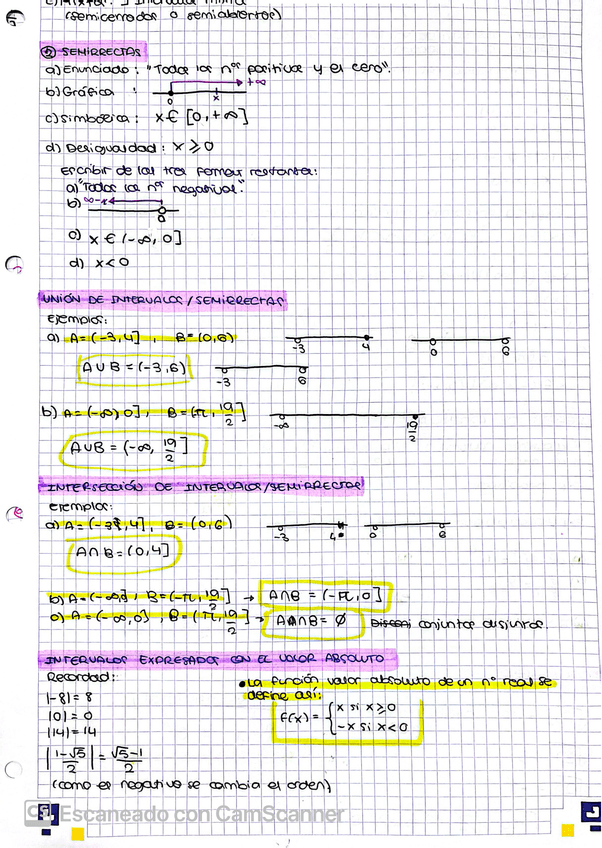 (semicerrados o semiabiertos)
② SEMIRRECTAS
a) Enunciado: "Todos los nos positivos y el cero".
b) Gráfica : 0 x +∞
c) Simbólica: x ∈ [0, +∞]
d) Desigualdad: x ⩾ 0
Escribir de las tres formas restantes:
a) "Todos los nos negativos".
b) ∞- 0
c) x ∈ (-∞, 0]
d) x < 0
UNIÓN DE INTERVALOS/SEMIRRECTAS
Ejemplos:
a) A = (-3, 4] B = (0, 6) -3 4 0 6
A ∪ B = (-3, 6) -3 6
b) A = (-∞, 0], B = (π, 19/2] -∞ 19/2
A ∪ B = (-∞, 19/2]
INTERSECCIÓN DE INTERVALOS/SEMIRRECTAS
Ejemplos:
a) A = (-3, 4], B = (0, 6) -3 4 0 6
A ∩ B = (0, 4]
b) A = (-∞, 0], B = (-π, 19/2] → A ∩ B = (-π, 0]
c) A = (-∞, 0], B = (π, 19/2] → A ∩ B = ∅ conjuntos disjuntos.
INTERVALOS EXPRESADOS CON EL VALOR ABSOLUTO
Recordad:
|-8| = 8
|0| = 0
|14| = 14
|1-√5/2| = √5-1/2
(como es negativo se cambia el orden)
• La función valor absoluto de un nº real se
define así:
F(x) = { x si x ⩾ 0
-x si x < 0
CS Escaneado con CamScanner